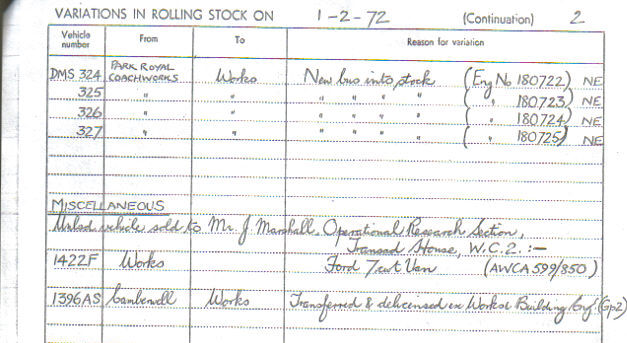 VARIATIONS IN ROLLING STOCK ON 1-2-72 (Continuation) 2
Vehicle number From To Reason for variation
DMS 324 PARK ROYAL COACHWORKS Works New bus into stock (Eng No 180722) NE
325 " " " " " " ( " 180723) NE
326 " " " " " " ( " 180724) NE
327 " " " " " " ( " 180725) NE
MISCELLANEOUS
vehicle sold to Mr. J. Marshall, Operational Research Section,
House, W.C.2. :—
1422F Works Ford 7cwt Van (AWCA 599/850)
1396AS Camberwell Works Transferred & delicensed ex Works & Building (Gp2)